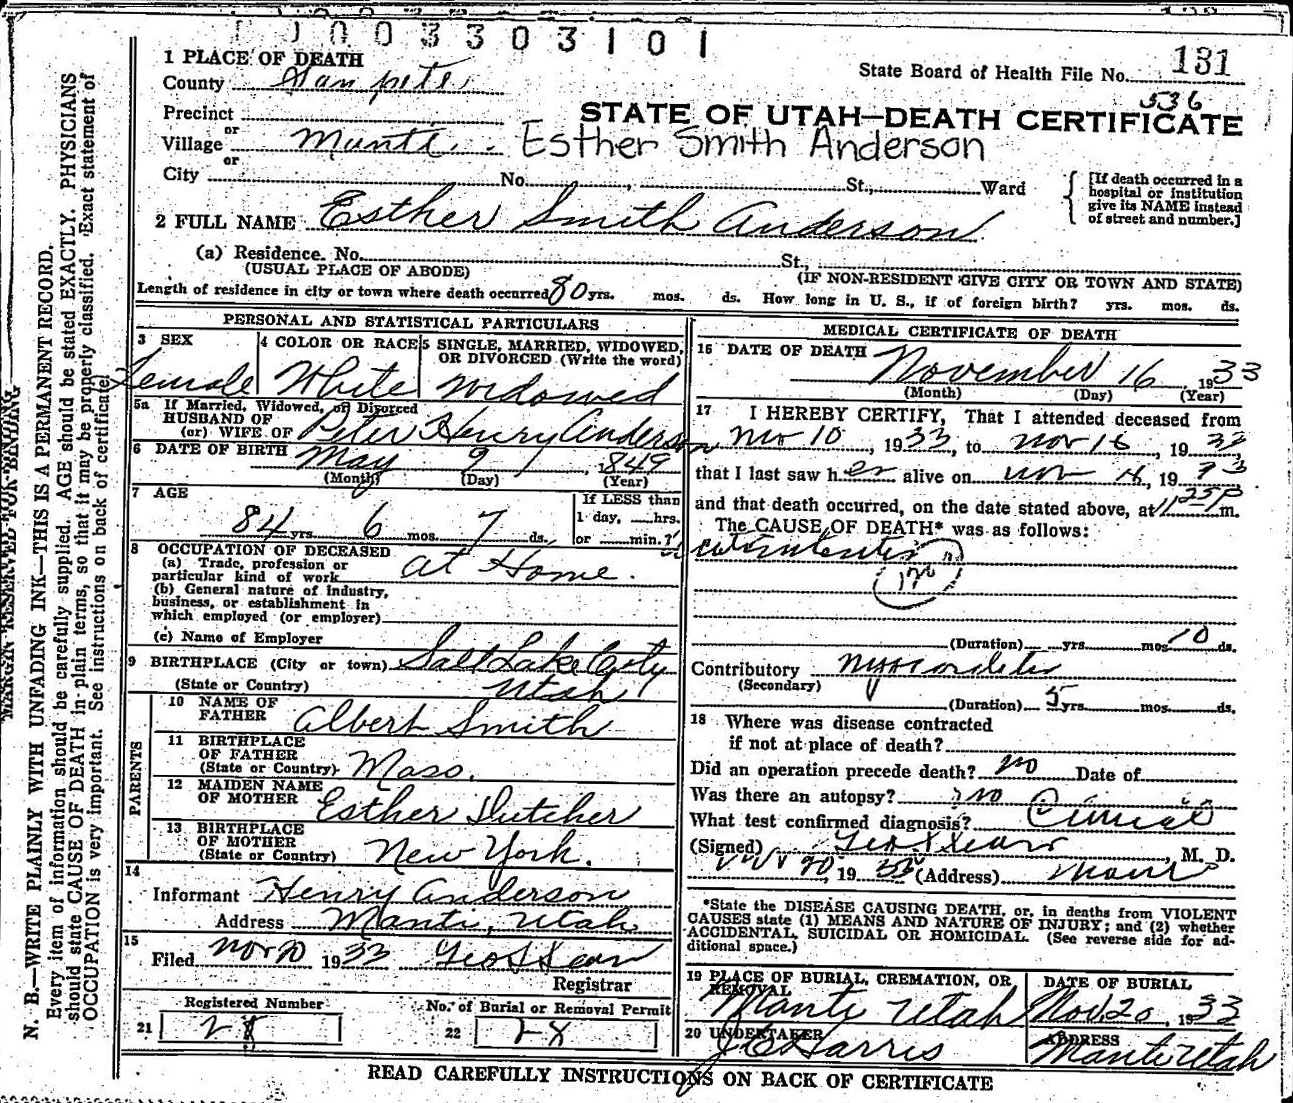 0 0 3 3 0 3 1 0 1
1 PLACE OF DEATH
County Sanpete
State Board of Health File No. 131
536
Precinct
STATE OF UTAH—DEATH CERTIFICATE
or
Village Manti Esther Smith Anderson
or
City No. St., Ward
[If death occurred in a hospital or institution give its NAME instead of street and number.]
2 FULL NAME Esther Smith Anderson
(a) Residence. No. St.,
(USUAL PLACE OF ABODE) (IF NON-RESIDENT GIVE CITY OR TOWN AND STATE)
Length of residence in city or town where death occurred 80 yrs. mos. ds. How long in U. S., if of foreign birth? yrs. mos. ds.
PERSONAL AND STATISTICAL PARTICULARS
3 SEX 4 COLOR OR RACE 5 SINGLE, MARRIED, WIDOWED, OR DIVORCED (Write the word)
Female White Widowed
5a If Married, Widowed, or Divorced
HUSBAND OF
(or) WIFE OF Peter Henry Anderson
6 DATE OF BIRTH May 9, 1849
(Month) (Day) (Year)
7 AGE
If LESS than
1 day, hrs.
84 yrs. 6 mos. 7 ds. or min.?
8 OCCUPATION OF DECEASED
(a) Trade, profession or
particular kind of work at Home.
(b) General nature of industry,
business, or establishment in
which employed (or employer)
(c) Name of Employer
9 BIRTHPLACE (City or town) Salt Lake City
(State or Country) Utah
PARENTS
10 NAME OF
FATHER Albert Smith
11 BIRTHPLACE
OF FATHER
(State or Country) Mass.
12 MAIDEN NAME
OF MOTHER Esther Dutcher
13 BIRTHPLACE
OF MOTHER
(State or Country) New York.
14
Informant Henry Anderson
Address Manti, Utah.
15
Filed Nov 20 1933 Geo L Sears
Registrar
Registered Number No. of Burial or Removal Permit
21 28 22 28
MEDICAL CERTIFICATE OF DEATH
16 DATE OF DEATH November 16, 1933
(Month) (Day) (Year)
17 I HEREBY CERTIFY, That I attended deceased from
Nov 10, 1933, to Nov 16, 1933,
that I last saw her alive on Nov 16, 1933
and that death occurred, on the date stated above, at 11 25 P m.
The CAUSE OF DEATH* was as follows:
120
(Duration) yrs. mos. 10 ds.
Contributory Myocarditis
(Secondary)
(Duration) 5 yrs. mos. ds.
18 Where was disease contracted
if not at place of death?
Did an operation precede death? no Date of
Was there an autopsy? no
What test confirmed diagnosis? Clinical
(Signed) Geo L Sears, M. D.
Nov 20, 19 33 (Address) Manti
*State the DISEASE CAUSING DEATH, or, in deaths from VIOLENT
CAUSES state (1) MEANS AND NATURE OF INJURY; and (2) whether
ACCIDENTAL, SUICIDAL OR HOMICIDAL. (See reverse side for ad-
ditional space.)
19 PLACE OF BURIAL, CREMATION, OR REMOVAL DATE OF BURIAL
Manti Utah Nov. 20, 1933
20 UNDERTAKER ADDRESS
J E Harris Manti Utah
READ CAREFULLY INSTRUCTIONS ON BACK OF CERTIFICATE
MARGIN RESERVED FOR BINDING
N. B.—WRITE PLAINLY WITH UNFADING INK—THIS IS A PERMANENT RECORD.
Every item of information should be carefully supplied. AGE should be stated EXACTLY. PHYSICIANS
should state CAUSE OF DEATH in plain terms, so that it may be properly classified. Exact statement of
OCCUPATION is very important. See instructions on back of certificate.